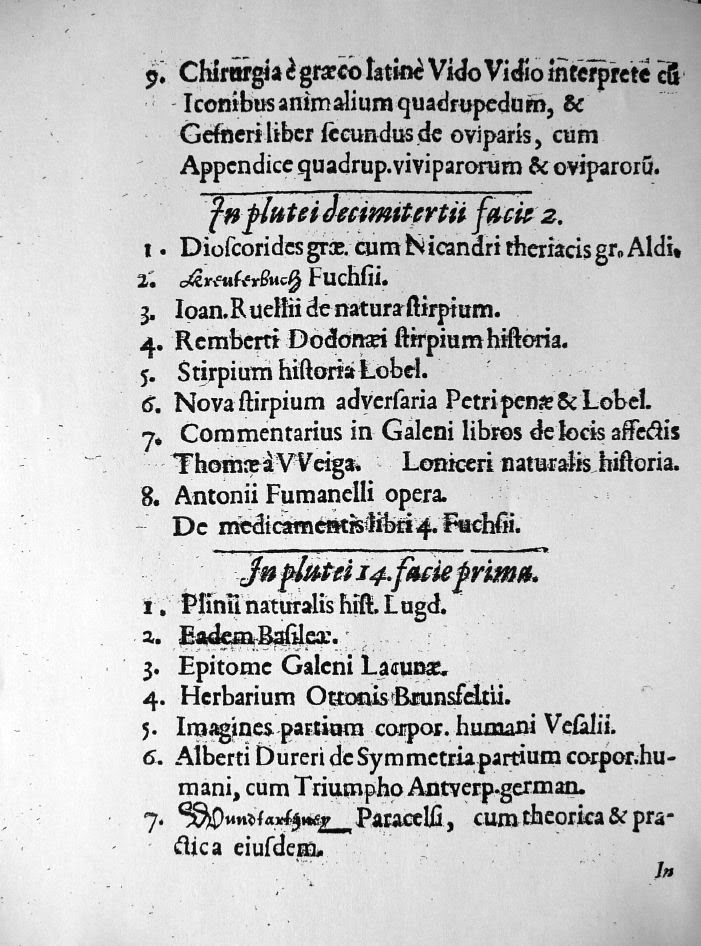 9. Chirurgia è græco latinè Vido Vidio interprete cū
Iconibus animalium quadrupedum, &
Geſneri liber ſecundus de oviparis, cum
Appendice quadrup. viviparorum & oviparorū.
In plutei decimitertii facie 2.
1. Dioſcorides græ. cum Nicandri theriacis gr. Aldi.
2. Kreuterbuch Fuchſii.
3. Ioan. Ruellii de natura ſtirpium.
4. Remberti Dodonæi ſtirpium hiſtoria.
5. Stirpium hiſtoria Lobel.
6. Nova ſtirpium adverſaria Petri penæ & Lobel.
7. Commentarius in Galeni libros de locis affectis
Thomæ à VVeiga. Loniceri naturalis hiſtoria.
8. Antonii Fumanelli opera.
De medicamentis libri 4. Fuchſii.
In plutei 14. facie prima.
1. Plinii naturalis hiſt. Lugd.
2. Eadem Baſileæ.
3. Epitome Galeni Lacunæ.
4. Herbarium Ottonis Brunsfeltii.
5. Imagines partium corpor. humani Veſalii.
6. Alberti Dureri de Symmetria partium corpor. hu-
mani, cum Triumpho Antverp. german.
7. Wundtartzney Paracelſi, cum theorica & pra-
ctica eiuſdem.
In